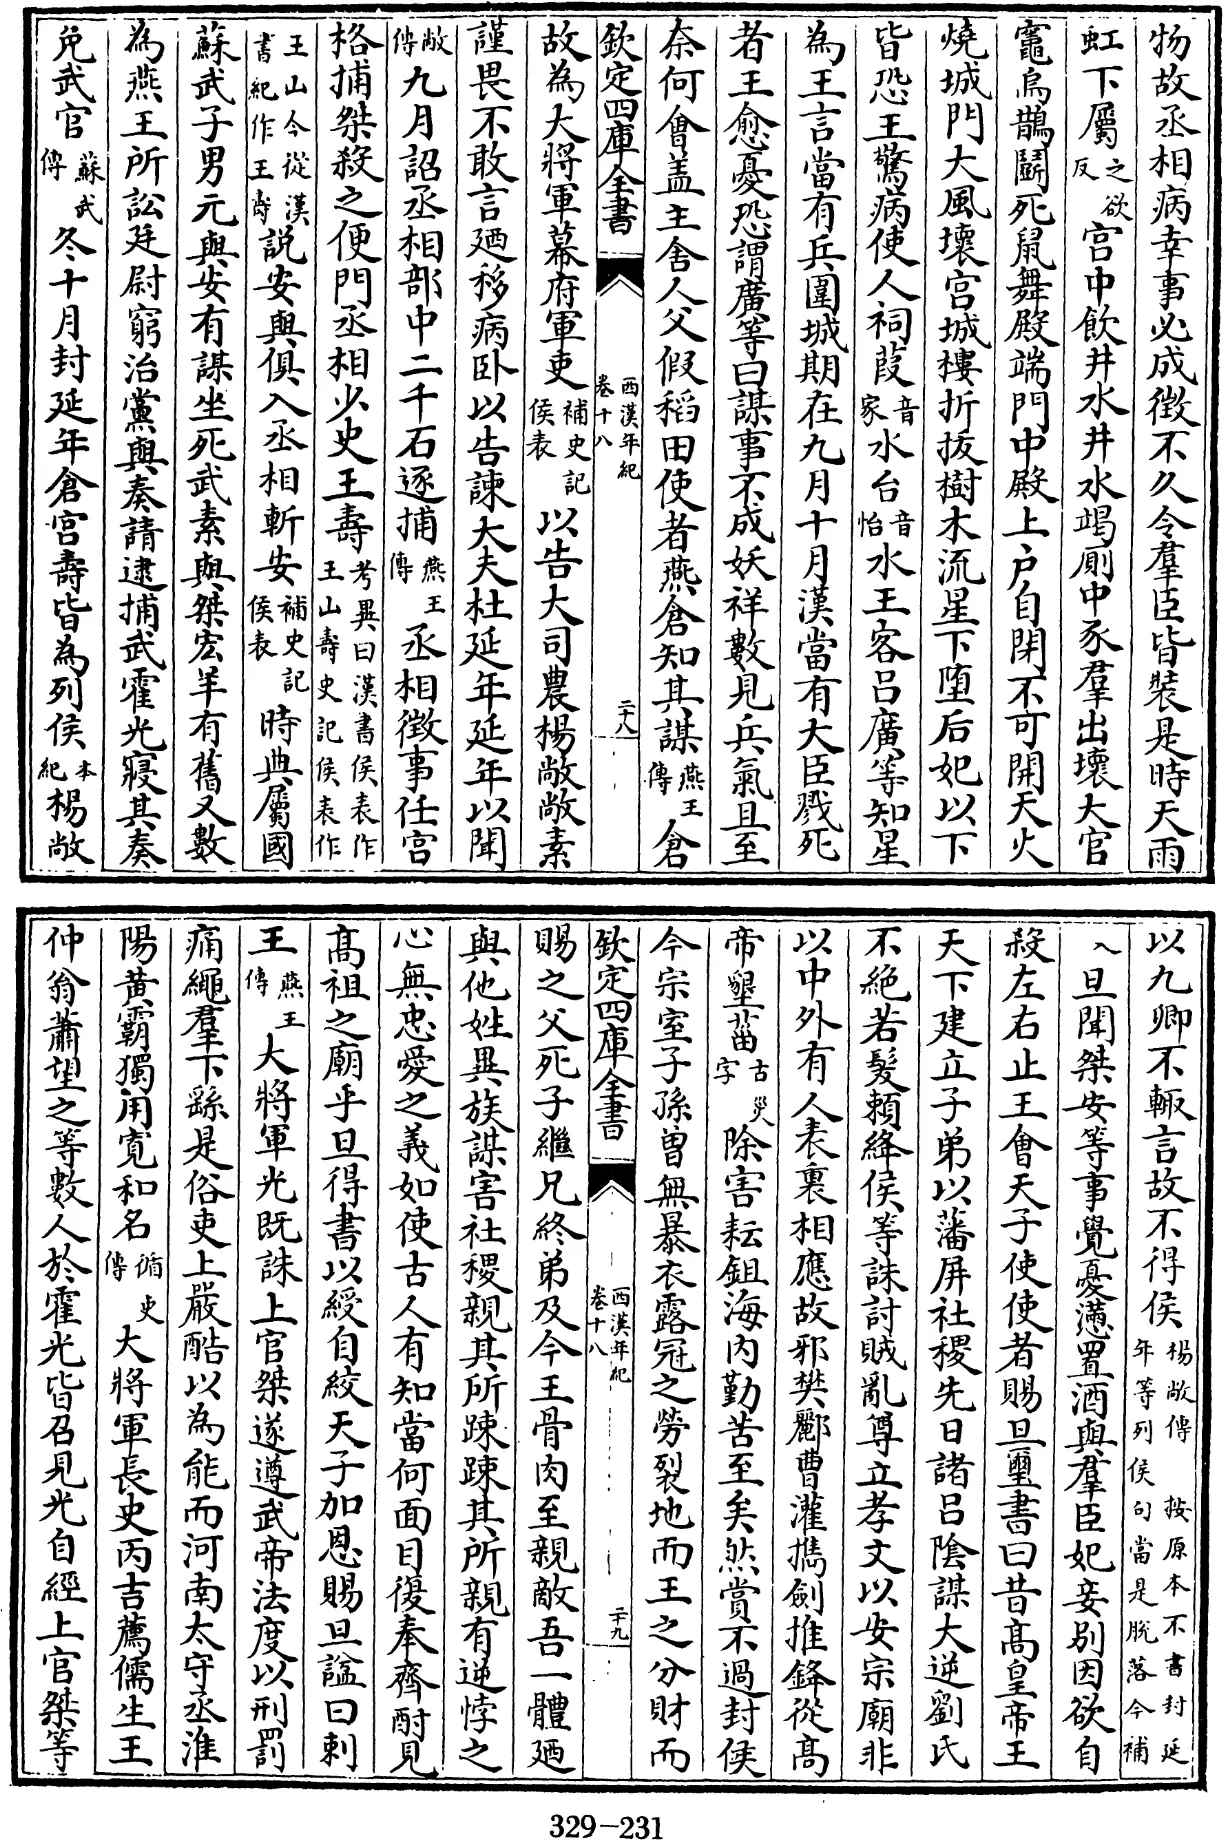 物故丞相病幸事必成徴不久令羣臣皆装是時天雨
虹下屬之欲反宫中飲井水井水竭厠中豕羣出壞大官
竈烏鵲鬭死鼠舞殿端門中殿上户自閉不可開天火
燒城門大風壞宫城樓折拔樹木流星下堕后妃以下
皆恐王驚病使人祠葭音家水台音怡水王客吕廣等知星
為王言當有兵圍城期在九月十月漢當有大臣戮死
者王愈憂恐謂廣等曰謀事不成妖祥數見兵氣且至
奈何會盖主舍人父假稻田使者燕倉知其謀燕王傳倉
欽定四庫全書
西漢年紀卷十八
二十八
故為大將軍幕府軍吏補史記侯表以告大司農楊敞敞素
謹畏不敢言廼移病卧以告諫大夫杜延年延年以聞
敞傳九月詔丞相部中二千石逐捕燕王傳丞相徴事任宫
格捕桀殺之便門丞相少史王壽考異曰漢書侯表作王山壽史記侯表作
王山今從漢書紀作王壽說安與俱入丞相斬安補史記侯表時典屬國
蘇武子男元與安有謀坐死武素與桀宏羊有舊又數
為燕王所訟廷尉窮治黨與奏請逮捕武霍光寢其奏
免武官蘇武傳冬十月封延年倉宫壽皆為列侯本紀楊敞
以九卿不輙言故不得侯楊敞傳　按原本不書封延年等列侯句當是脱落今補
入旦聞桀安等事覺憂懣置酒與羣臣妃妾别因欲自
殺左右止王會天子使使者賜旦璽書曰昔髙皇帝王
天下建立子弟以藩屏社稷先日諸吕陰謀大逆劉氏
不絶若髮賴絳侯等誅討賊亂尊立孝文以安宗廟非
以中外有人表裏相應故邪樊酈曹灌攜劍推鋒從髙
帝墾葘古災字除害耘鉏海内勤苦至矣然賞不過封侯
今宗室子孫曾無暴衣露冠之勞裂地而王之分財而
欽定四庫全書
西漢年紀卷十八
二十九
賜之父死子繼兄終弟及今王骨肉至親敵吾一體廼
與他姓異族謀害社稷親其所踈踈其所親有逆悖之
心無忠愛之義如使古人有知當何面目復奉齊酎見
髙祖之廟乎旦得書以綬自絞天子加恩賜旦諡曰剌
王燕王傳大將軍光既誅上官桀遂遵武帝法度以刑罰
痛繩羣下繇是俗吏上嚴酷以為能而河南太守丞淮
陽黄霸獨用寛和名循吏傳大將軍長史丙吉薦儒生王
仲翁蕭望之等數人於霍光皆召見光自經上官桀等
329-231